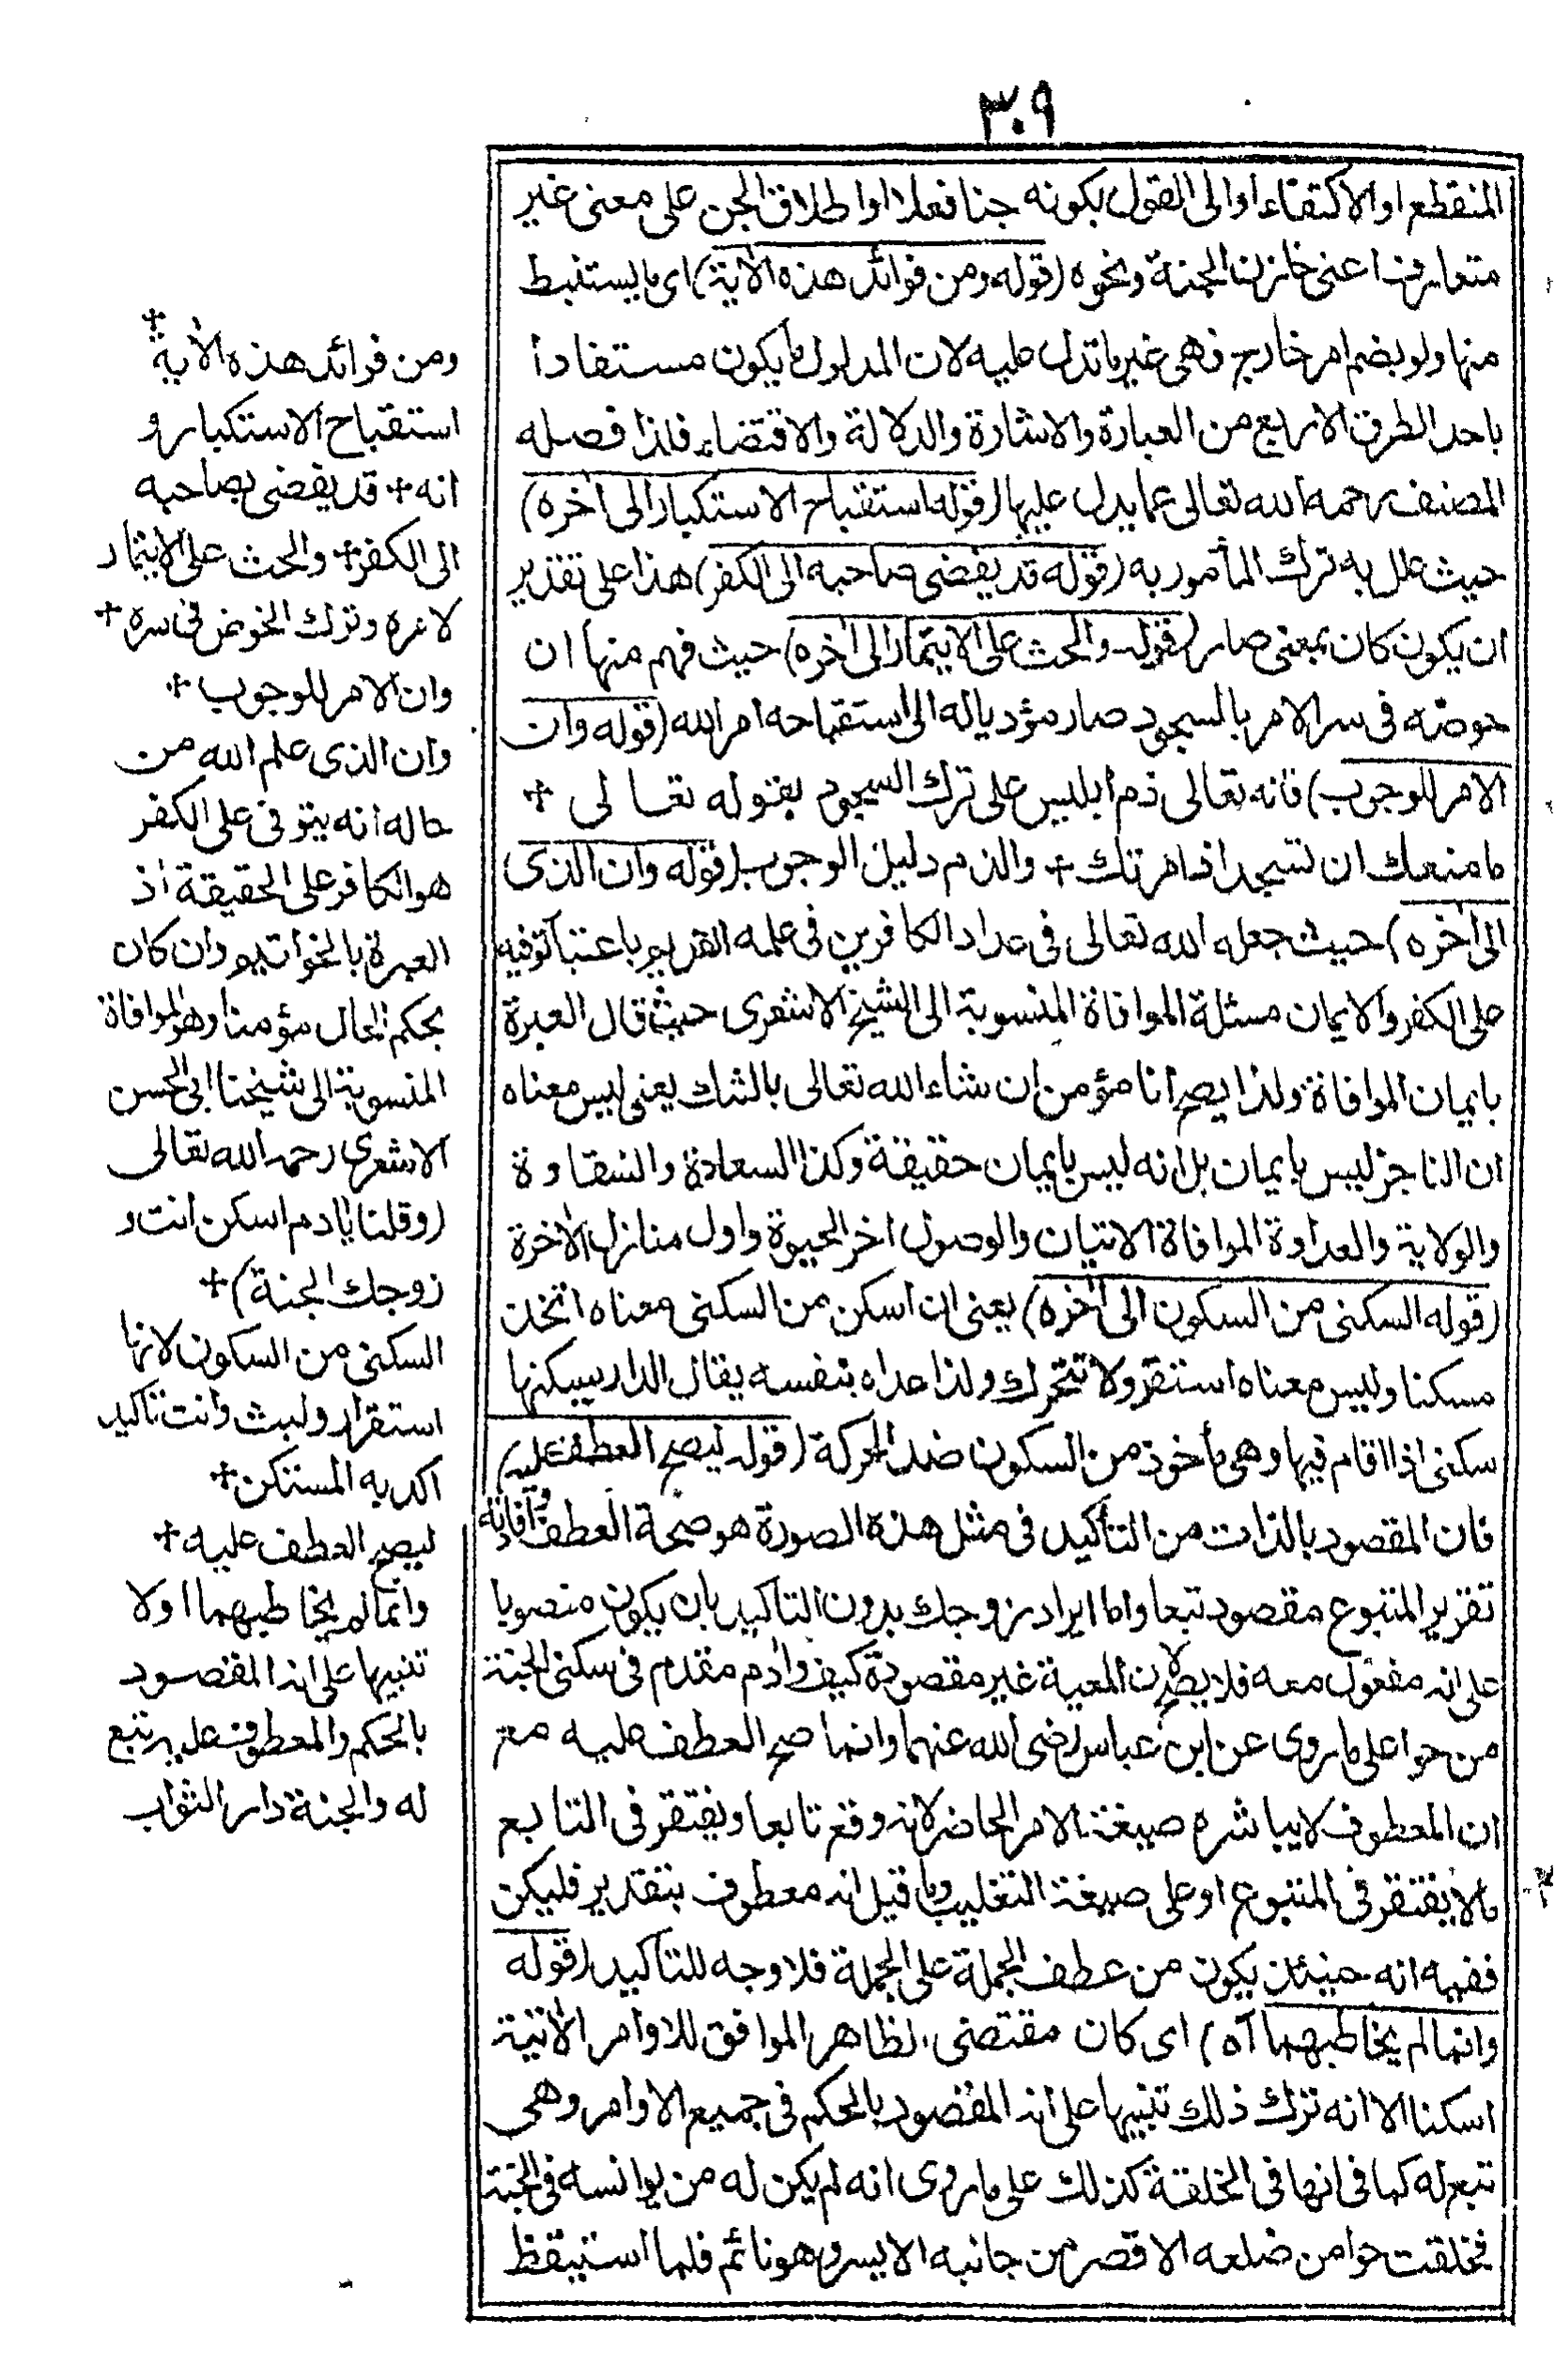 ٣٠٩
المنقطع او الاكتفاء او الى القول بكونه جنا فعلا او اطلاق الجن على معنى غير
متعارف اعنى خازن الجنة ونحوه (قوله ومن فوائد هذه الاٰية) اى ما يستنبط
منها ولو بضم امر خارج فهى غير ما تدل عليه لان المدلول ما يكون مستفادا
باحد الطرق الاربع من العبارة والاشارة والدلالة والاقتضاء فلذا فصله
المصنف رحمه الله تعالى عما يدل عليها (قوله استقباح الاستكبار الى اٰخره)
حيث علل به ترك المأمور به (قوله قد يفضى صاحبه الى الكفر) هذا على تقدير
ان يكون كان بمعنى صار (قوله والحث على الايتمار الى اٰخره) حيث فهم منها ان
خوضه فى سر الامر بالسجود صار مؤديا له الى استقباحه امر الله (قوله وان
الامر للوجوب) فانه تعالى ذم ابليس على ترك السجود بقوله تعالى +
ما منعك ان تسجد اذ امرتك + والذم دليل الوجوب (قوله وان الذى
الى اٰخره) حيث جعله الله تعالى فى عداد الكافرين فى علمه القديم باعتبار توفيه
على الكفر والايمان مسئلة الموافاة المنسوبة الى الشيخ الاشعرى حيث قال العبرة
بايمان الموافاة ولذا يصح انا مؤمن ان شاء الله تعالى بالشك يعنى ليس معناه
ان الناجز ليس بايمان بل انه ليس بايمان حقيقة وكذا السعادة والشقاوة
والولاية والعداوة الموافاة الاتيان والوصول اخر الحيوة واول منازل الاٰخرة
(قوله السكنى من السكون الى اٰخره) يعنى ان اسكن من السكنى معناه اتخذ
مسكنا وليس معناه استقر ولا تتحرك ولذا عداه بنفسه يقال الدار يسكنها
سكنى اذا اقام فيها وهى مأخوذ من السكون ضد الحركة (قوله ليصح العطف عليه)
فان المقصود بالذات من التأكيد فى مثل هذه الصورة هو صحة العطف و افاته
تقرير المتبوع مقصود تبعا واما ايراد زوجك بدون التاكيد بان يكون منصوبا
على انه مفعول معه فلا يصح لان المعية غير مقصودة كيف واٰدم مقدم فى سكنى الجنة
من حوا على ما روى عن ابن عباس رضى الله عنهما وانما صح العطف عليه مع
ان المعطوف لا يباشره صيغة الامر الحاضر لانه وقع تابعا ويفتقر فى التابع
ما لا يفتقر فى المتبوع او على صيغة التغليب وما قيل انه معطوف بتقدير فليكن
ففيه انه حينئذ يكون من عطف الجملة على الجملة فلا وجه للتاكيد (قوله
وانما لم يخاطبهما اٰه) اى كان مقتضى الظاهر الموافق للاوامر الاٰتية
اسكنا الا انه ترك ذلك تنبيها على انه المقصود بالحكم فى جميع الاوامر وهى
تبع له كما فى انها فى الخلقة كذلك على ما روى انه لم يكن له من يوانسه فى الجنة
فخلقت حوا من ضلعه الاقصر من جانبه الايسر وهو نائم فلما استيقظ
ومن فوائد هذه الاٰية +
استقباح الاستكبار و
انه + قد يفضى بصاحبه
الى الكفر + والحث على الايتمار
لامره وترك الخوض فى سره +
وان الامر للوجوب +
وان الذى علم الله من
حاله انه يتوفى على الكفر
هو الكافر على الحقيقة اذ
العبرة بالخواتيم وان كان
بحكم الحال مؤمنا وهو الموافاة
المنسوبة الى شيخنا ابى الحسن
الاشعرى رحمه الله تعالى
(وقلنا يٰادم اسكن انت و
زوجك الجنة) +
السكنى من السكون لانها
استقرار ولبث وانت تاكيد
اكد به المستكن +
ليصح العطف عليه +
وانما لم يخاطبهما اولا
تنبيها على انه المقصود
بالحكم والمعطوف عليه تبع
له والجنة دار الثواب